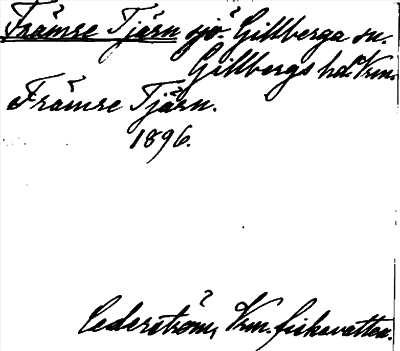 Främre Tjärn sjö. Gillberga sn.
Gillbergs hd. Vrm.
Främre Tjärn.
1896.
Cederström, Vrm. fiskevatten.